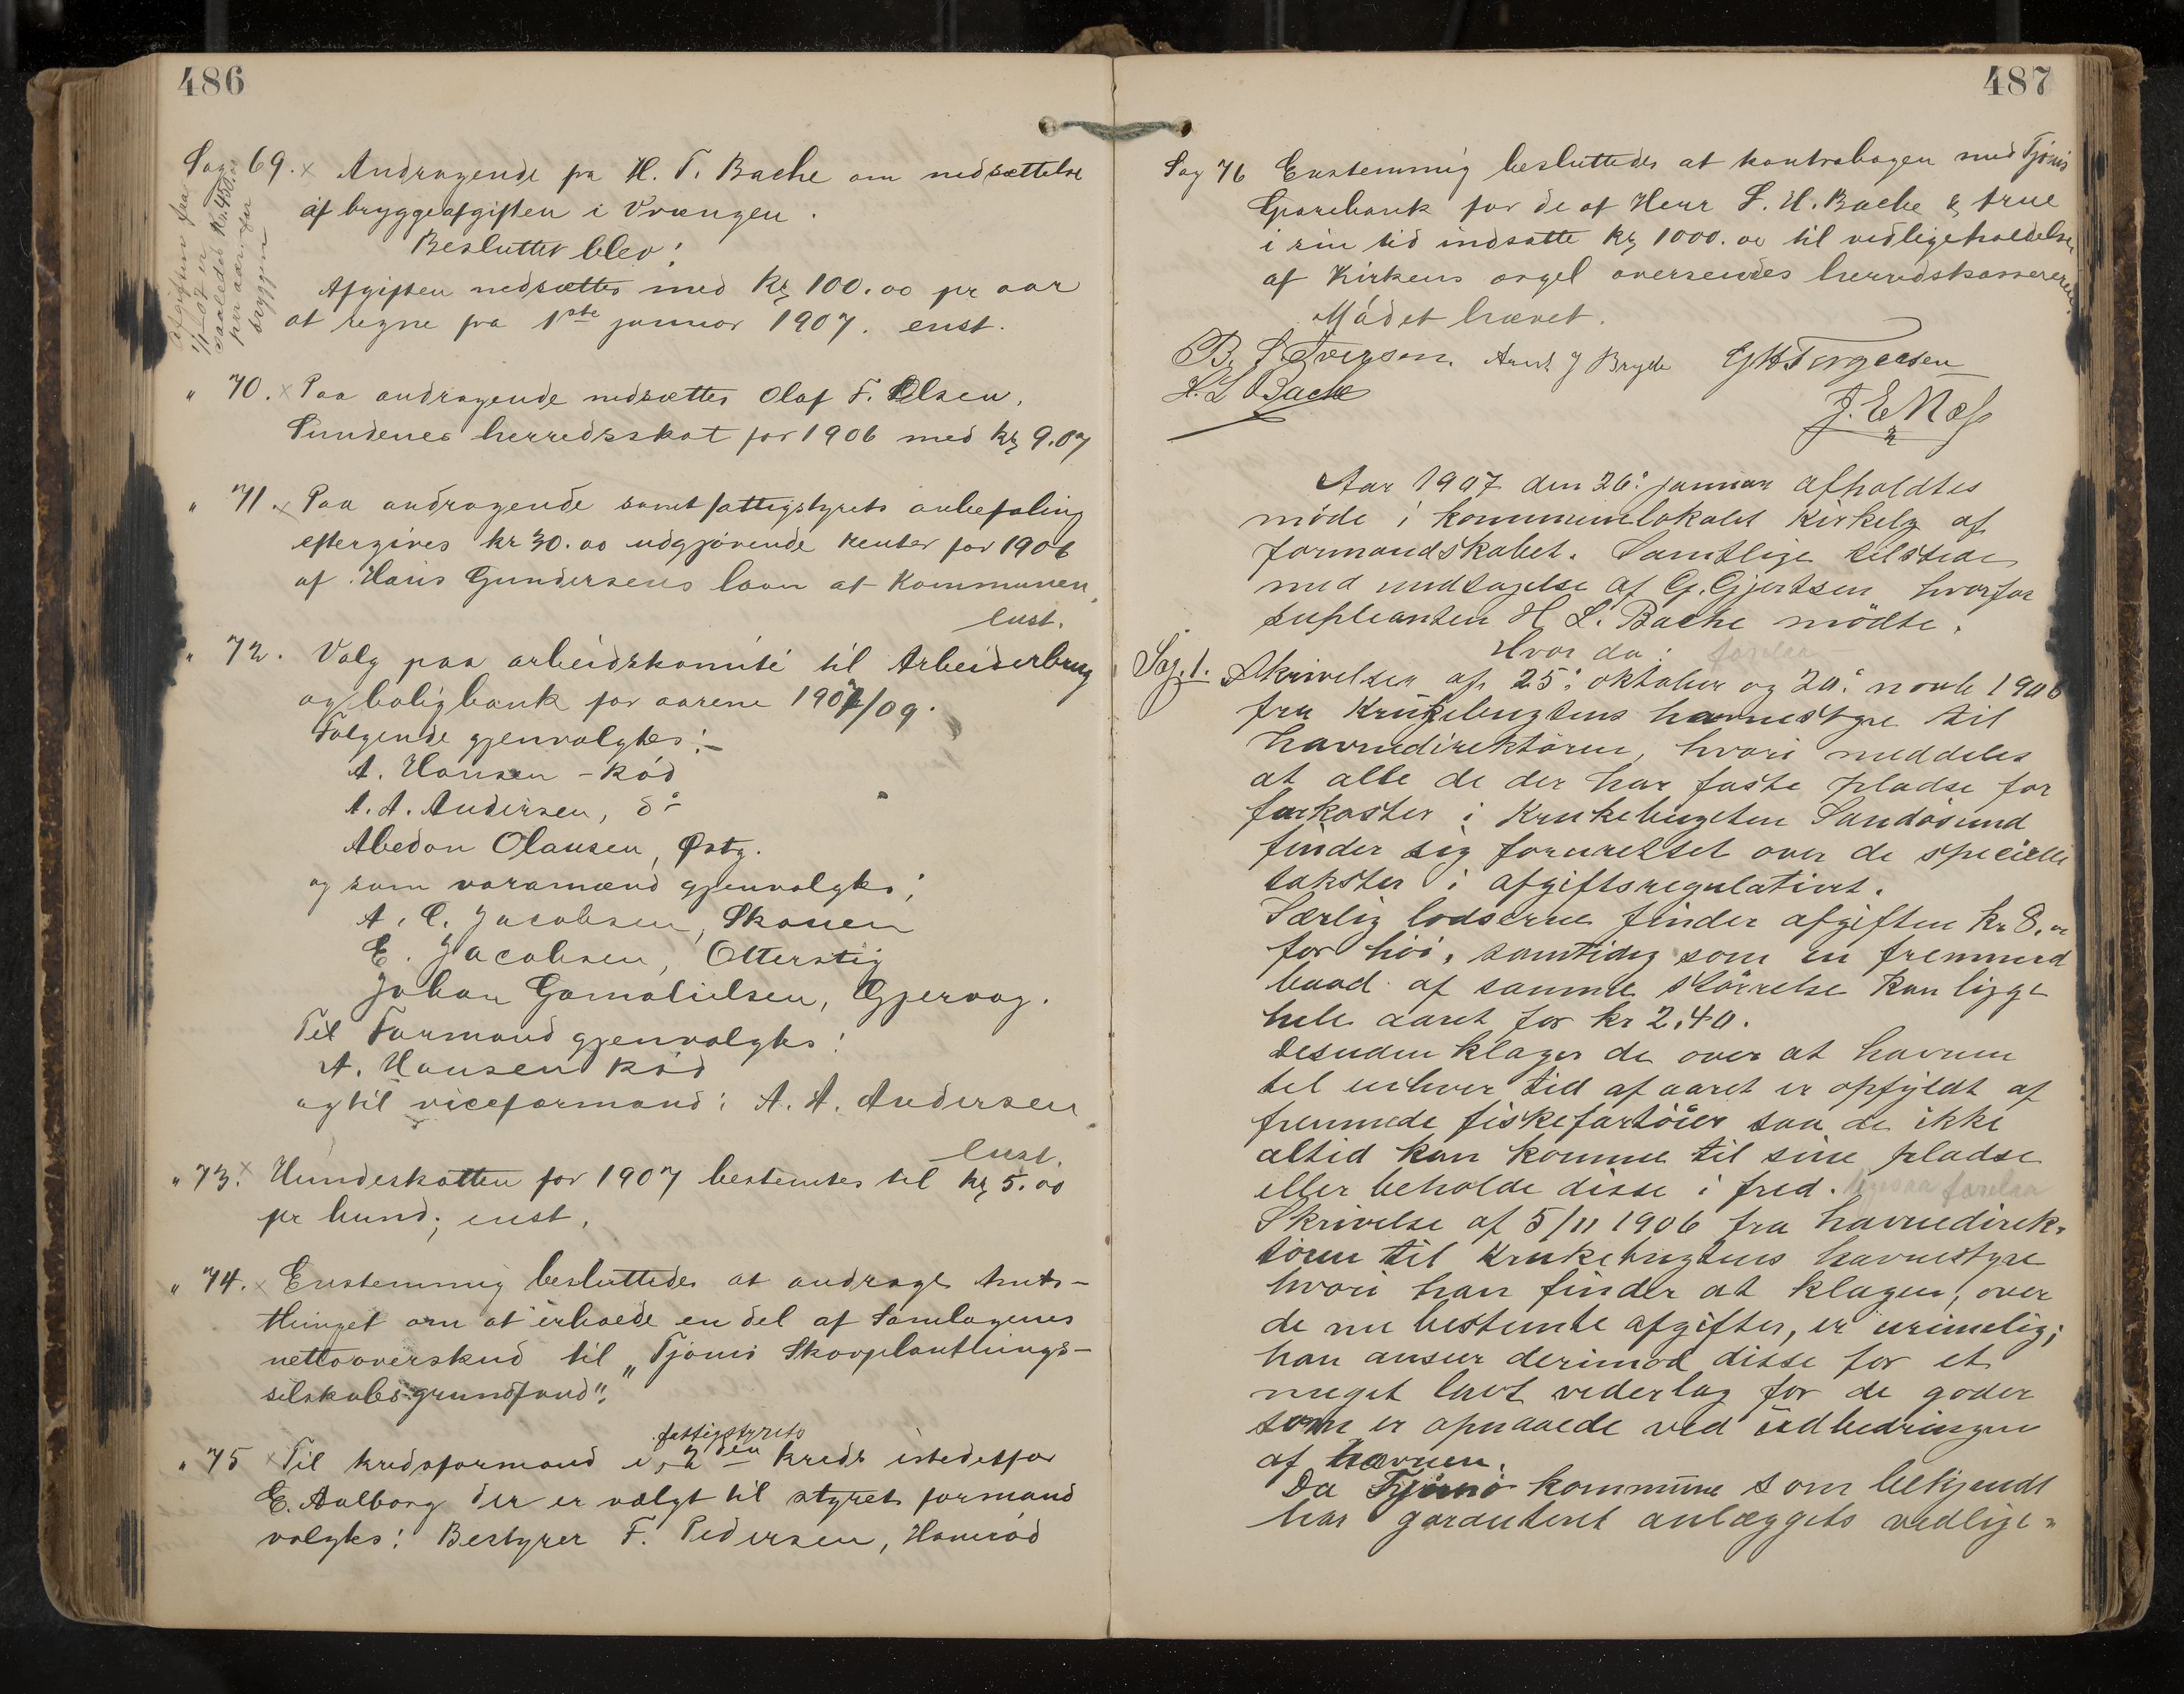 486
Sag 69. x Andragende fra H. T. Bache om nedsættelse
af bryggeafgiften i Vrængen.
Besluttet blev:
Afgiften nedsættes med Kr 100.00 pr aar
at regne fra 1ste januar 1907. enst.
Afgiften fra
1/1-07 er
saaledes Kr. 450.00
per aar for
bryggen
" 70. x Paa andragende nedsættes Olaf F. Olsen,
Sundenes herredsskat for 1906 med kr 9.07
" 71. x Paa andragende samt fattigstyrets anbefaling
eftergives kr 30.00 udgjørende renter for 1906
af Hans Gundersens laan at Kommunen,
enst.
" 72. Valg paa arbeidskomité til Arbeiderbrug
og boligbank for aarene 1907/09.
Følgende gjenvalgtes:-
A. Hansen - Rød
A. A. Andersen, do
Abedon Olausen, Østg.
og som varamænd gjenvalgtes;
A. C. Jacobsen, Skauen
E. Jacobsen, Otterstig
Johan Gamalielsen, Gjervaag.
Til Formand gjenvalgtes:
A. Hansen Rød
og til viceformand: A. A. Andersen
enst.
" 73. x Hundeskatten for 1907 bestemtes til kr 5.00
pr hund; enst.
" 74. x Enstemmig besluttedes at andrage Amts-
thinget om at erholde en del af Samlagenes
nettooverskud til "Tjømø Skovplantnings-
selskabs grundfond".
fattigstyrets
" 75 x Til kredsformand i 2den kreds istedetfor
E. Aalborg der er valgt til styrets formand
valgtes: Bestyrer F. Pedersen, Haverød
487
Sag 76 Enstemmig besluttedes at kontrabogen med Tjømø
Sparebank for de af Herr S. H. Bache & frue
i sin tid indsatte Kr 1000.00 til vedligeholdelse
af Kirkens orgel oversendes herredskassereren.
Mødet hævet.
B. S. Iversen. Arnt J Bryde G H Torgersen
H. L Bache
J. E Næss
Aar 1907 den 26: januar afholdtes
møde i kommunelokalet Kirkely af
formandskabet. Samtlige tilstede
med undtagelse af G. Gjertsen hvorfor
supleanten H L. Bache mødte.
Hvor da: forelaa
Sag. 1. Skrivelser af 25: oktober og 20: novb 1906
fra Krukebugtens havnestyre til
havnedirektøren, hvori meddeles
at alle de der har faste pladse for
farkoster i Krukebugten Sandøsund
finder sig forurettet over de specielle
takster i afgiftsregulativet.
Særlig lodserne finder afgiften kr 8.00
for høi, samtidig som en fremmed
baad af samme størrelse kan ligge
hele aaret for kr 2,40.
Desuden klager de over at havnen
til enhver tid af aaret er opfyldt af
fremmede fiskefartøier saa de ikke
altid kan komme til sine pladse
eller beholde disse i fred. ligesaa forelaa
Skrivelse af 5/11 1906 fra havnedirek-
tøren til Krukebugtens havnestyre
hvori han finder at klagen, over
de nu bestemte afgifter, er urimelig;
han anseer derimod disse for et
meget lavt vederlag for de goder
som er opnaaede ved udbedringen
af havnen.
Da Tjømø kommune som bekjendt
har garanteret anlæggets vedlige-